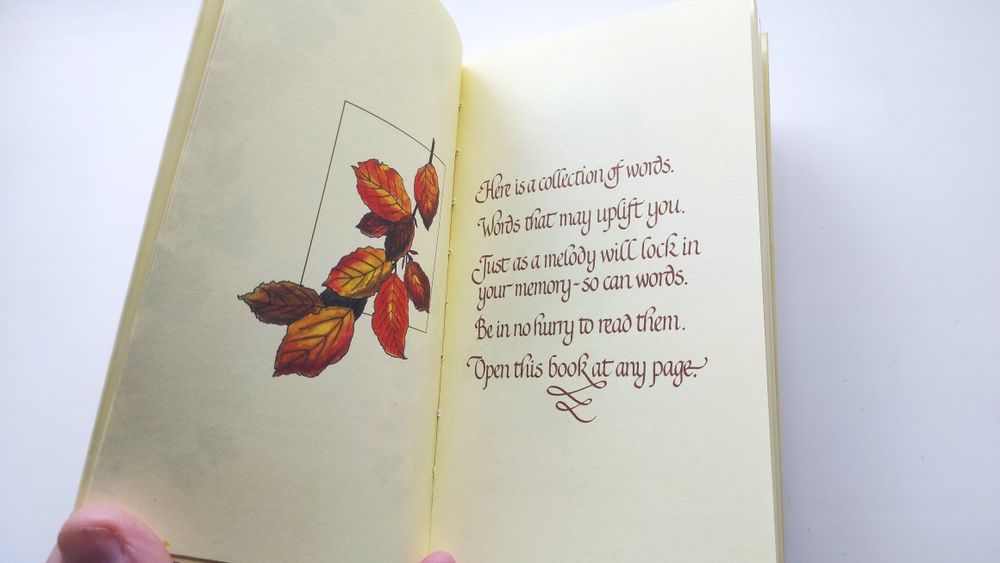 Here is a collection of words.
Words that may uplift you.
Just as a melody will lock in
your memory - so can words.
Be in no hurry to read them.
Open this book at any page.